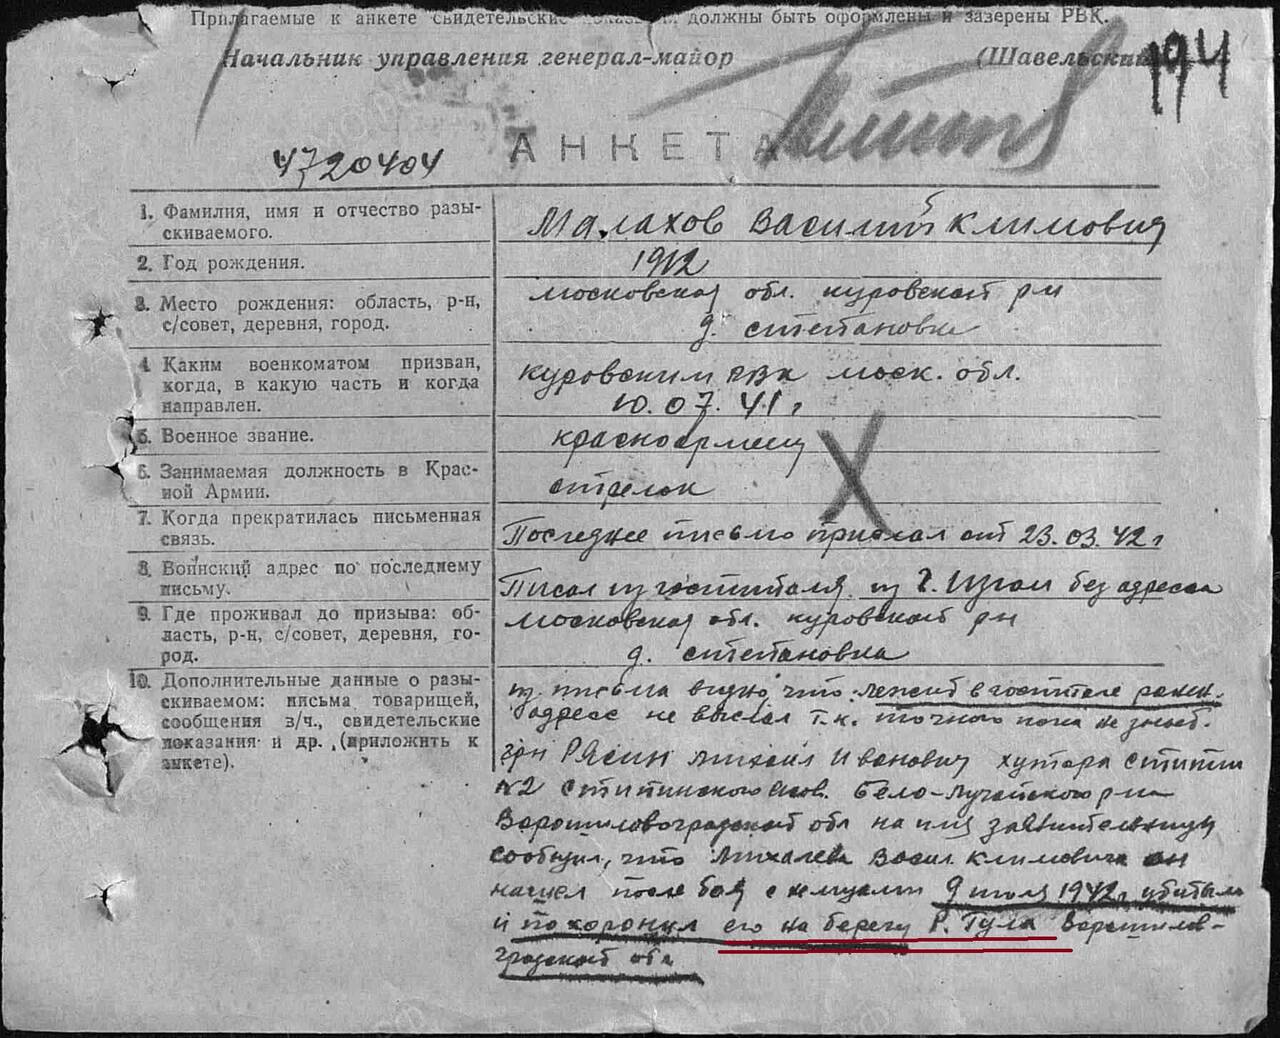 Прилагаемые к анкете свидетельские показания должны быть оформлены и заверены РВК.
Начальник управления генерал-майор (Шавельский)
194
АНКЕТА
4720404
1. Фамилия, имя и отчество разыскиваемого. Малахов Василий Климович
2. Год рождения. 1912
3. Место рождения: область, р-н, с/совет, деревня, город. московская обл. куровской р-н
д. степановка
4. Каким военкоматом призван, когда, в какую часть и когда направлен. куровским РВК моск. обл.
10.07.41 г
5. Военное звание. красноармеец
6. Занимаемая должность в Красной Армии. стрелок
7. Когда прекратилась письменная связь. Последнее письмо прислал от 23.03.42 г
8. Воинский адрес по последнему письму. Писал из госпиталя из г. Изюм без адреса
9. Где проживал до призыва: область, р-н, с/совет, деревня, город. московская обл. куровской р-н
д. степановка
10. Дополнительные данные о разыскиваемом: письма товарищей, сообщения в/ч., свидетельские показания и др. (приложить к анкете).
из письма видно, что лежит в госпитале ранен.
адрес не выслал т.к. точного пока не знает.
гр-н Рясин михаил Иванович хутора
№2 Бело-Луческого р-на
Ворошиловоградской обл на имя
сообщил, что Васил. климовича он
нашел после боя с немцами 9 июля 1942 г. убитым
и похоронил его на берегу р. Гула Ворошилов-
градской обл